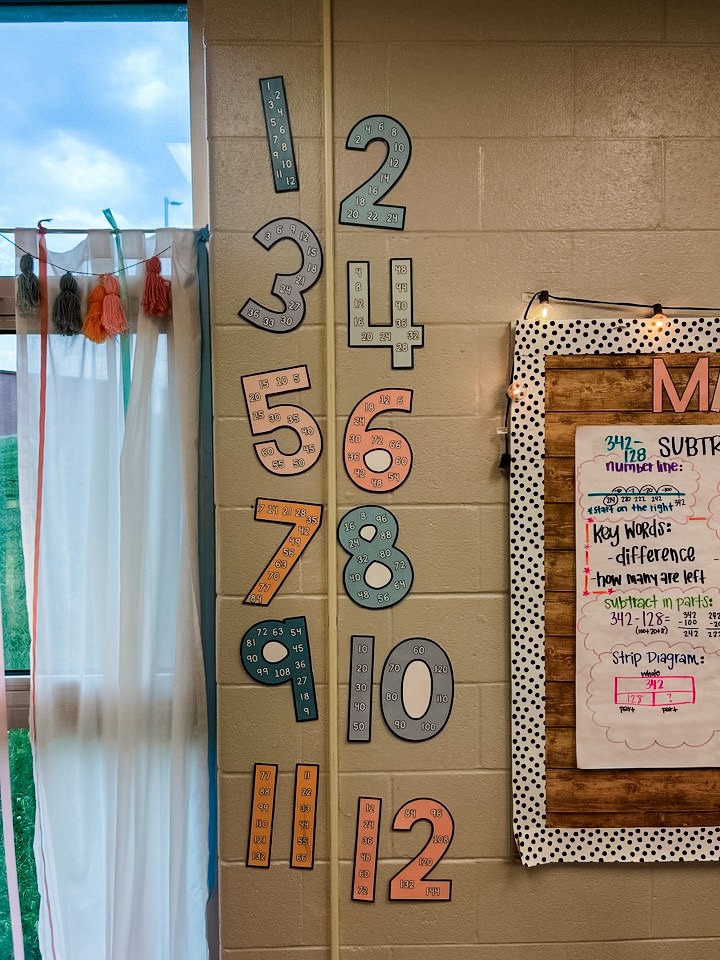 1
1 2
3 4
5 6
7 8
9 10
11 12
2
2 4 6 8
10
12
14
16
18
20 22 24
3
3 6 9 12
15
18
21
24
27
36 33 30
4
4 48
8 44
12 40
16 36
20 24 32
28
5
15 10 5
20
25 30 35
40
45
60
55 50
6
18 12 6
24
30 72 66
36 60
42 48 54
7
7 14 21 28 35
42
49
56
63
70
77
84
8
8 96
16
24 88
32 80
72
40 64
48 56
9
72 63 54
81 45
90
99 108 36
27
18
9
10
10 60
20 70 120
30
40 80 110
50 90 100
11
77 11
88 22
99 33
110 44
121 55
132 66
12
12 84 96
24 108
36
48 120
60
72 132 144
MA
342- SUBTR
128
number line:
214 220 222 242 342
*start on the right
Key words:
-difference
-how many are left
subtract in parts:
342-128= 342
(100+20+8) -100
242
Strip Diagram:
whole
342
128 ?
part part